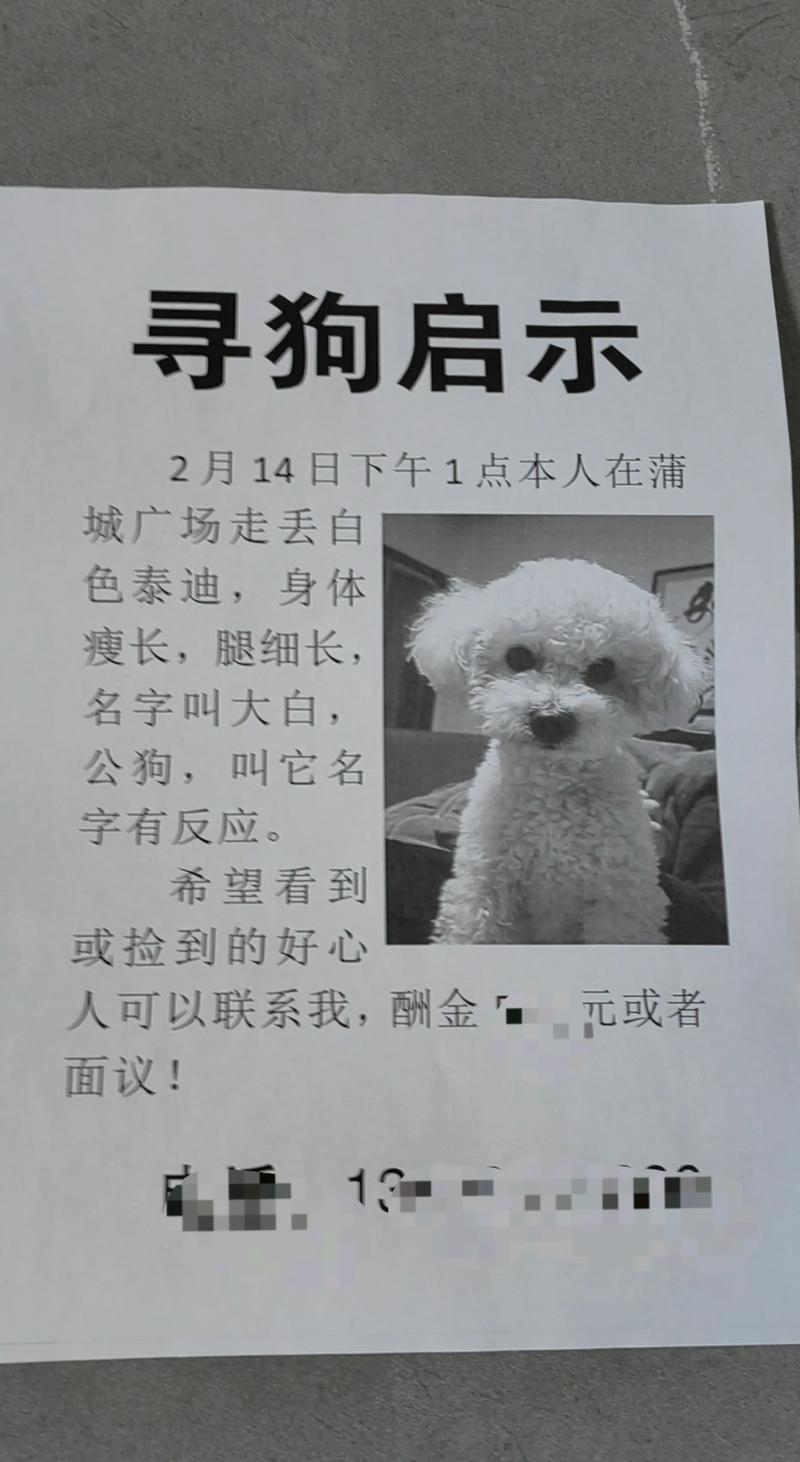 寻狗启示
2月14日下午1点本人在蒲
城广场走丢白
色泰迪，身体
瘦长，腿细长，
名字叫大白，
公狗，叫它名
字有反应。
希望看到
或捡到的好心
人可以联系我，酬金 元或者
面议！
13